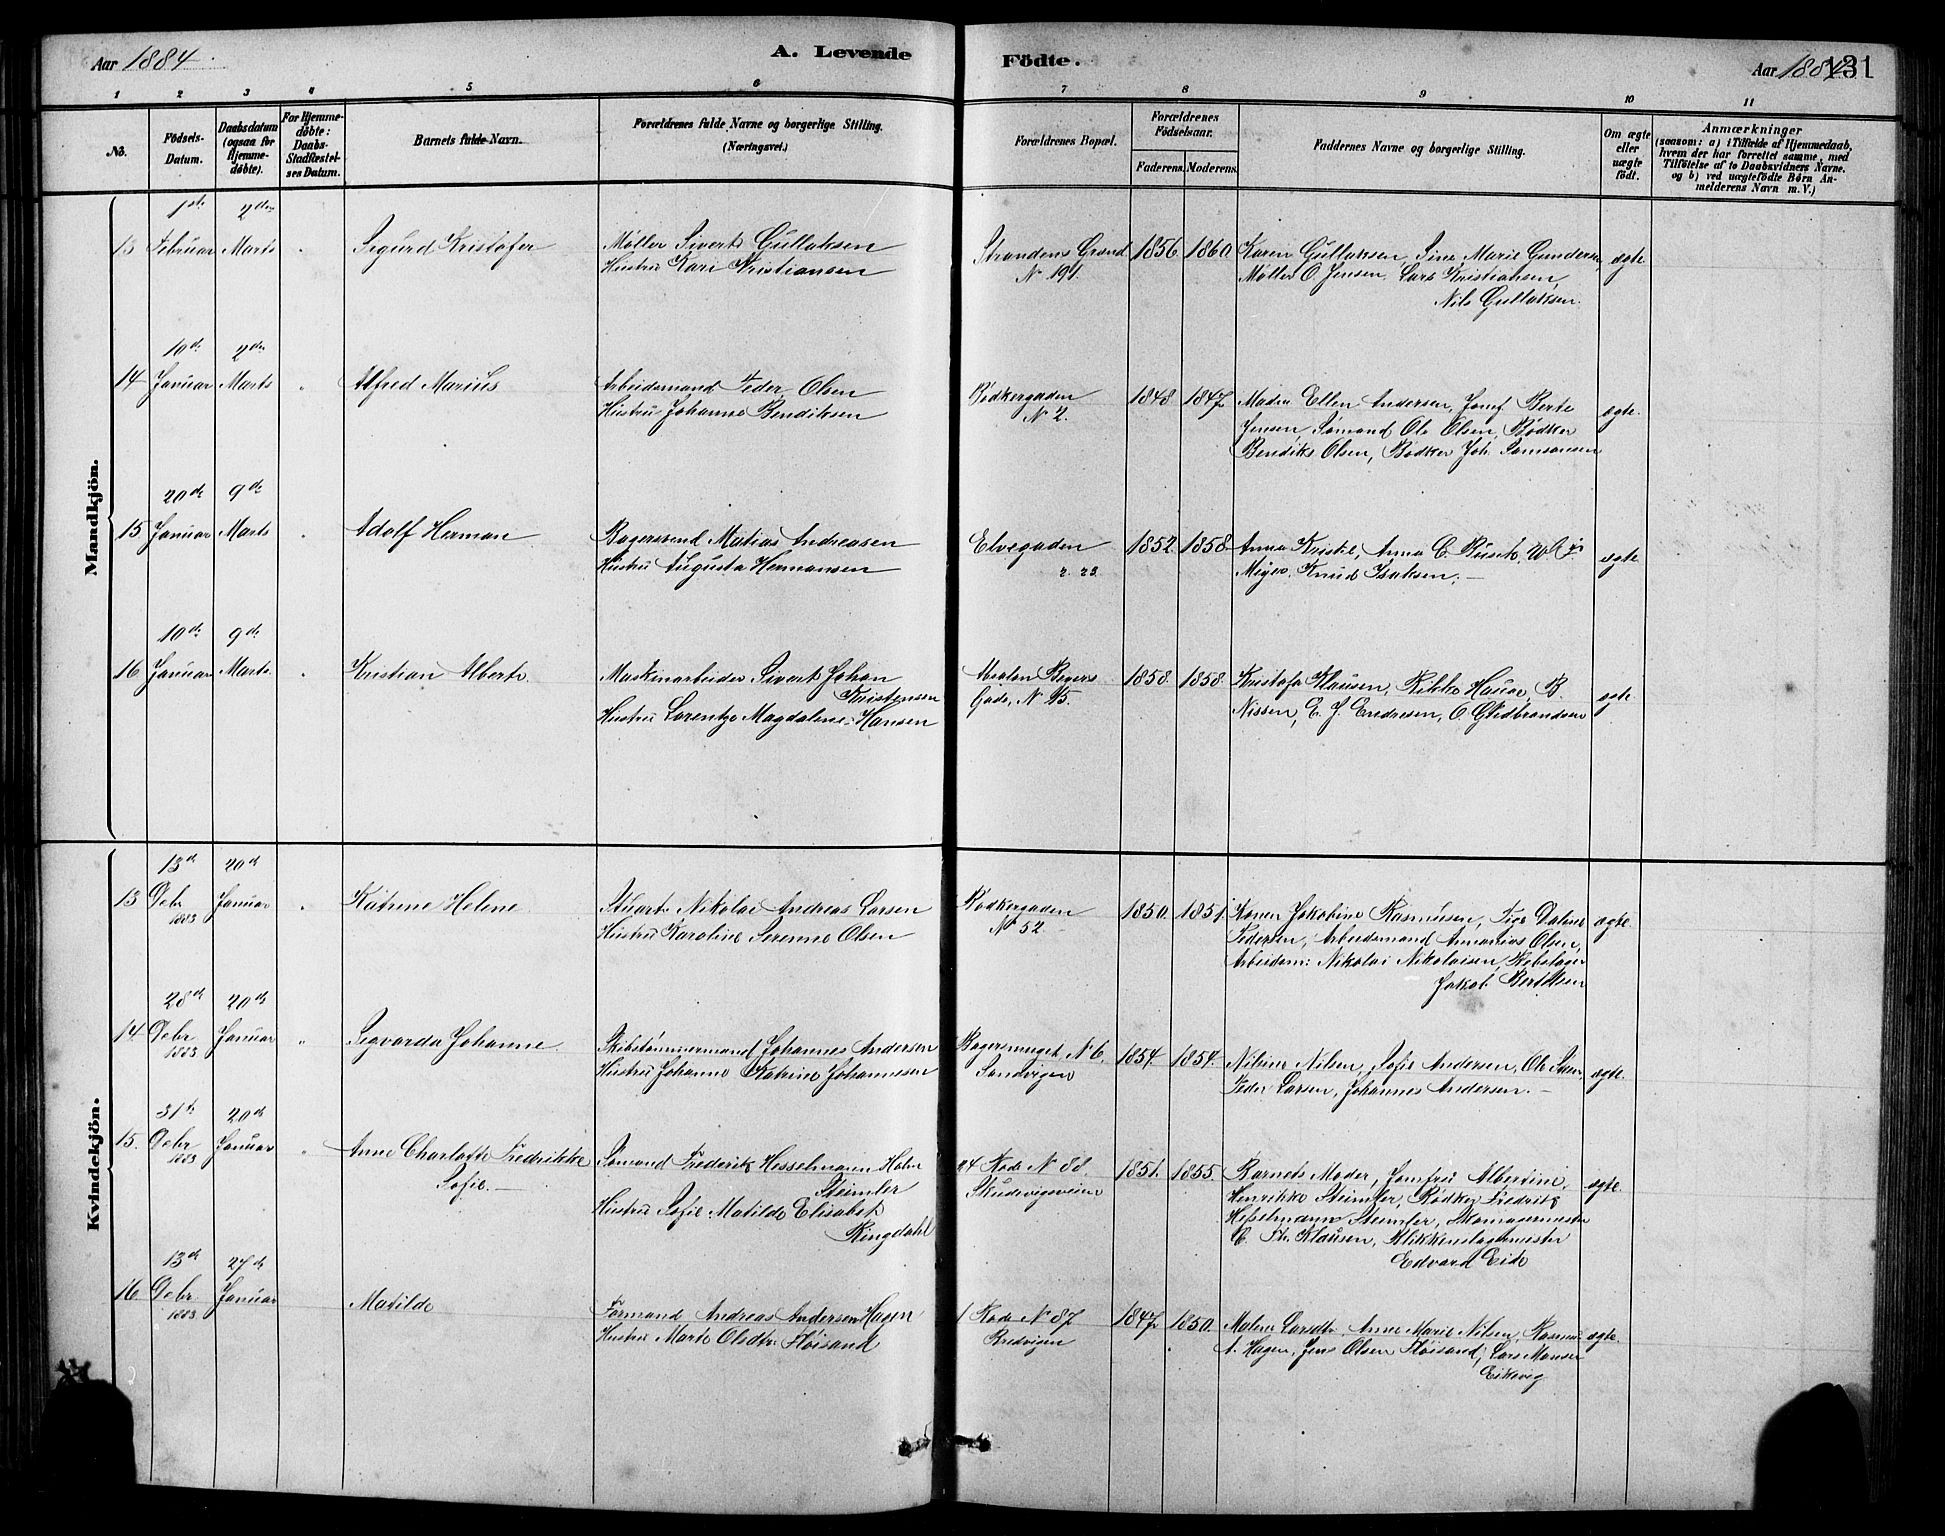 Aar 1884.
A. Levende Födte.
Aar 1884
131
1 2 3 4 5 6 7 8 9 10 11
No.
Födsels-Datum.
Daabsdatum (ogsaa for Hjemmedöbte).
For Hjemmedöbte: Daabs-Stadfæstelses Datum.
Barnets fulde Navn.
Forældrenes fulde Navne og borgerlige Stilling.
(Næringsvei.)
Forældrenes Bopæl.
Forældrenes Födselsaar.
Faderens. Moderens.
Faddernes Navne og borgerlige Stilling.
Om ægte eller uægte födt.
Anmærkninger
(saasom: a) i Tilfælde af Hjemmedaab,
hvem der har forrettet samme, med
Tilföielse af to Daabsvidners Navne.
og b) ved uægtefödte Börn An-
melderens Navn m. V.)
Mandkjön.
1de 2den
13 Februar Marts " Sigurd Kristofer Møller Sivert Gullaksen Strandens Grand 1856. 1860. Karen Gullaksen, Sine Marie Gundersen, ægte.
Hustru Kari Kristiansen N 191. Møller O Jensen, Lars Kristiansen,
Nils Gullaksen.
10de 2den
14 Januar Marts " Alfred Marius Arbeidsmand Peder Olsen Bødkergaden 1848. 1847 Madm Ellen Andersen, Jomf Berte ægte.
Hustru Johanne Bendiksen N 2. Jensen, Sømand Ole Olsen, Bødker
Bendiks Olsen, Bødker Joh. Samsonsen
20de 9de
15 Januar Marts " Adolf Herman Bagersvend Matias Andreasen Elvegaden 1852. 1858. Anna Kristie, Anna C. Busch,
Hustru Augusta Hermansen r. 23. Meyer, Knud Isaksen. — ægte
10de 9de
16 Januar Marts. " Kristian Alberts. Maskinarbeider Sivert Johan Absalon Beyers 1858. 1858. Kristofa Klausen, Rikke Hauge, B.
Kristensen Gade, N 45. Nissen, E. J. Endresen, O. Guldbrandsen ægte.
Hustru Lorentze Magdalene Hansen
Kvindekjön.
13de 20de
13 Debr 1883 Januar " Katrine Helene Stuart Nikolai Andreas Larsen Bødkergaden 1850. 1851. Koner Jakobine Rasmussen, Tror Daline ægte.
Hustru Karoline Serenne Olsen N 52 Pedersen, Arbeidsmand Annanias Olsen,
Arbeidsm: Nikolai Nikolaisen, Rebslager
Jakob Bertelsen
28de 20de
14. Debr 1883 Januar " Sigvarda Johanne. Skibstømmermand Johannes Andersen Bagersmuget N 6. 1854. 1854. Niline Nilsen, Sofie Andersen, Ole
Hustru Johanne Katrine Johannesen Sandvigen Peder Larsen, Johannes Andersen. — ægte.
31te 20de
15. Debr 1883 Januar " Anne Charlotte Fredrikke Sømand Frederik Hesselmann Holm 24 Rode N 88 1851. 1855. Barnets Moder, Jomfru Albertine ægte.
Sofie. — Steimler Skudevigsveien Henrikke Steimler, Bødker Fredrik
Hustru Sofie Matilde Elisabet Hesselmann Steimler, Skomagermester
Ringdahl C. Fr. Klausen, Blikkenslagermester
Edvard Eide
13de 27de
16. Debr. 1883. Januar Matilde Formand Andreas Andersen Hagen 1 Rode N 87 1847 1850. Malene Larsdtr. Anne Marie Nilsen, Rasmus ægte.
Hustru Marte Olsdtr. Fløisand Bredvigen A. Hagen, Jens Olsen Fløisand, Lars Monsen
Eikevig